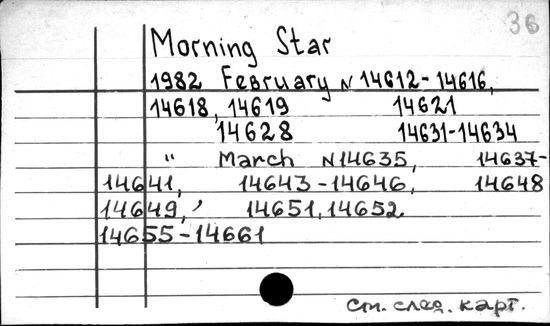 36
Morning Star
1982 February N 14612-14616,
14618, 14619 14621
14628 14631-14634
" March N14635, 14637-
14641, 14643-14646, 14648
14649, 14651, 14652.
14655-14661
См. след. карт.